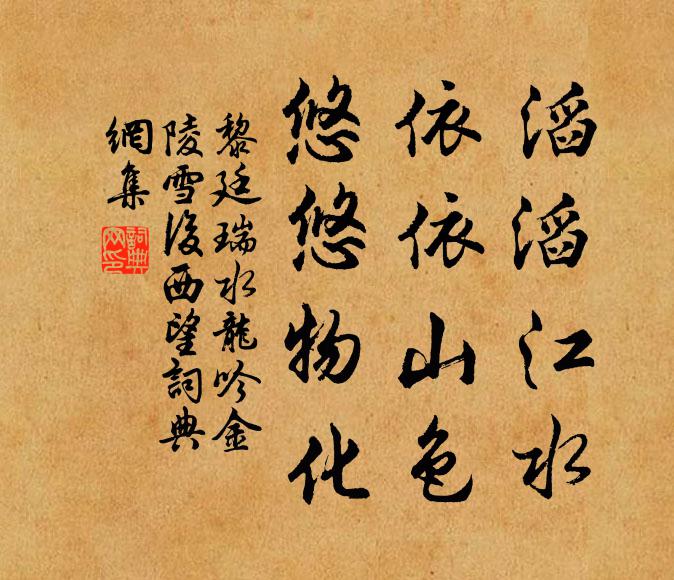 滔滔江水
依依山色
悠悠物化
黎廷瑞水龍吟金
陵雪後西望詞典
網集
詞典
网印